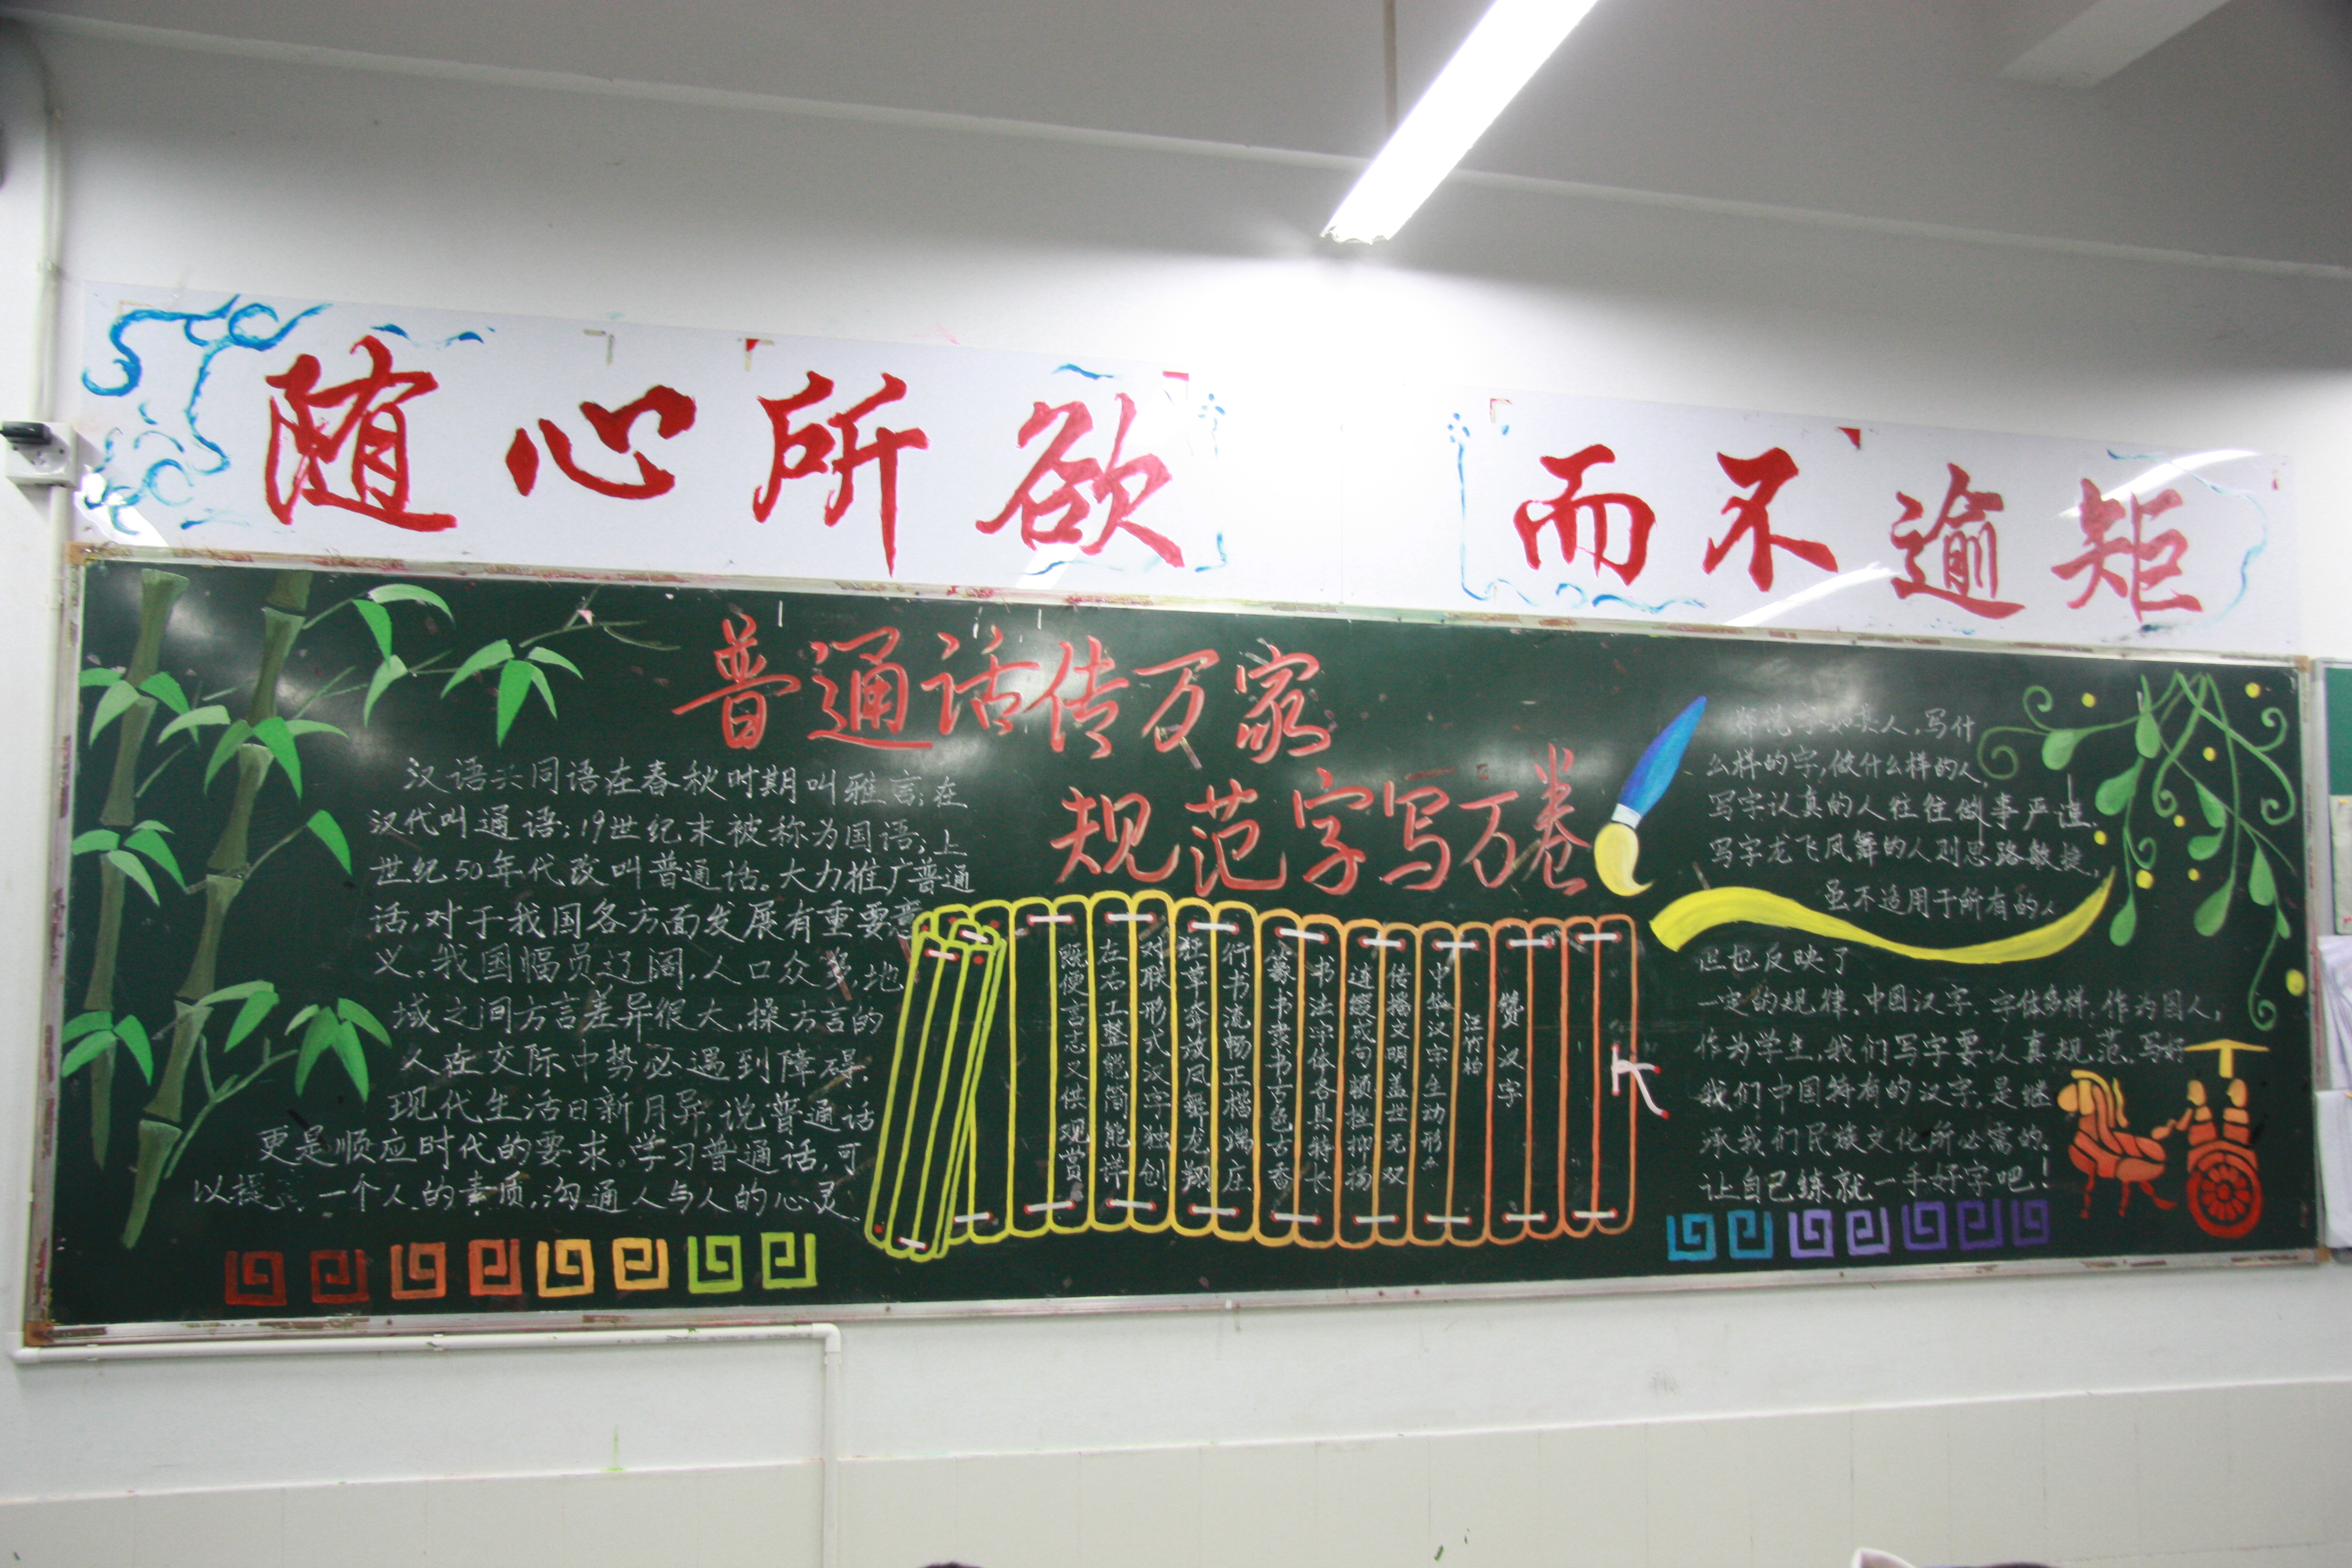 随心所欲 而不逾矩
普通话传万家
规范字写万卷
汉语共同语在春秋时期叫雅言;在
汉代叫通语;19世纪末被称为国语;上
世纪50年代改叫普通话。大力推广普通
话,对于我国各方面发展有重要意
义。我国幅员辽阔,人口众多,地
域之间方言差异很大,操方言的
人在交际中势必遇到障碍.
现代生活日新月异,说普通话
更是顺应时代的要求。学习普通话,可
以提高一个人的素质,沟通人与人的心灵.
赞汉字
汪竹柏
中华汉字生动形
传播文明盖世无双
连缀成句顿挫抑扬
书法字体各具特长
篆书隶书古色古香
行书流畅正楷端庄
狂草奔放凤舞龙翔
对联形式汉字独创
左右工整能简能详
既便言志又供观赏
字如其人,写什
么样的字,做什么样的人,
写字认真的人往往做事严谨.
写字龙飞凤舞的人则思路敏捷,
虽不适用于所有的人
但也反映了
一定的规律.中国汉字.字体多样.作为国人,
作为学生,我们写字要认真规范.写好
我们中国特有的汉字,是继
承我们民族文化所必需的.
让自己练就一手好字吧!